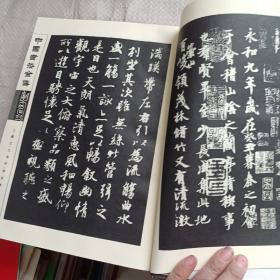 永和九年歲在癸丑暮春之初會
于會稽山陰之蘭亭脩稧事
也羣賢畢至少長咸集此地
領茂林脩竹又有清流激
湍暎帶左右引以為流觴曲水
列坐其次雖無絲竹管弦之
盛一觴一詠亦足以暢敘幽情
是日也天朗氣清惠風和暢仰
觀宇宙之大俯察品類之盛
所以遊目騁懷足以極視聽之
中國書法全集